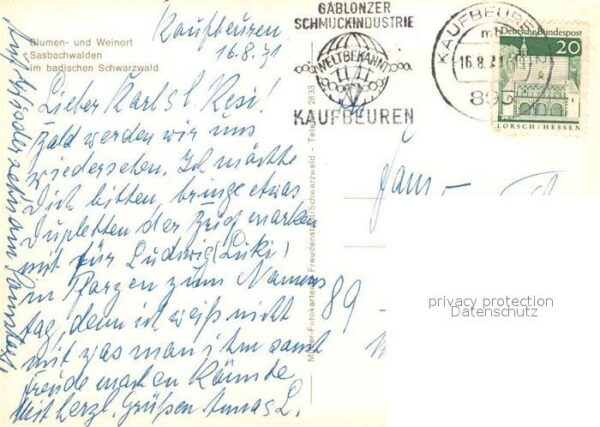 Blumen- und Weinort
Sasbachwalden
im badischen Schwarzwald
Kaufbeuren
16.8.71
Lieber Karl
bald werden wir uns
wiedersehen. Ich möchte
Dich bitten, bringe etwas
Dupletten der
mit für Ludwig (Luki)
in zum Namens
tag, denn ich weiß nicht
mit was man ihm sonst
Freude machen könnte
Mit herzl. Grüßen
Auf Wiedersehn am Samstag!
GABLONZER
SCHMUCKINDUSTRIE
WELTBEKANNT
KAUFBEUREN
KAUFBEUREN
16.8.71
895
Deutsche Bundespost
20
LORSCH/HESSEN
Fam-
89
privacy protection
Datenschutz